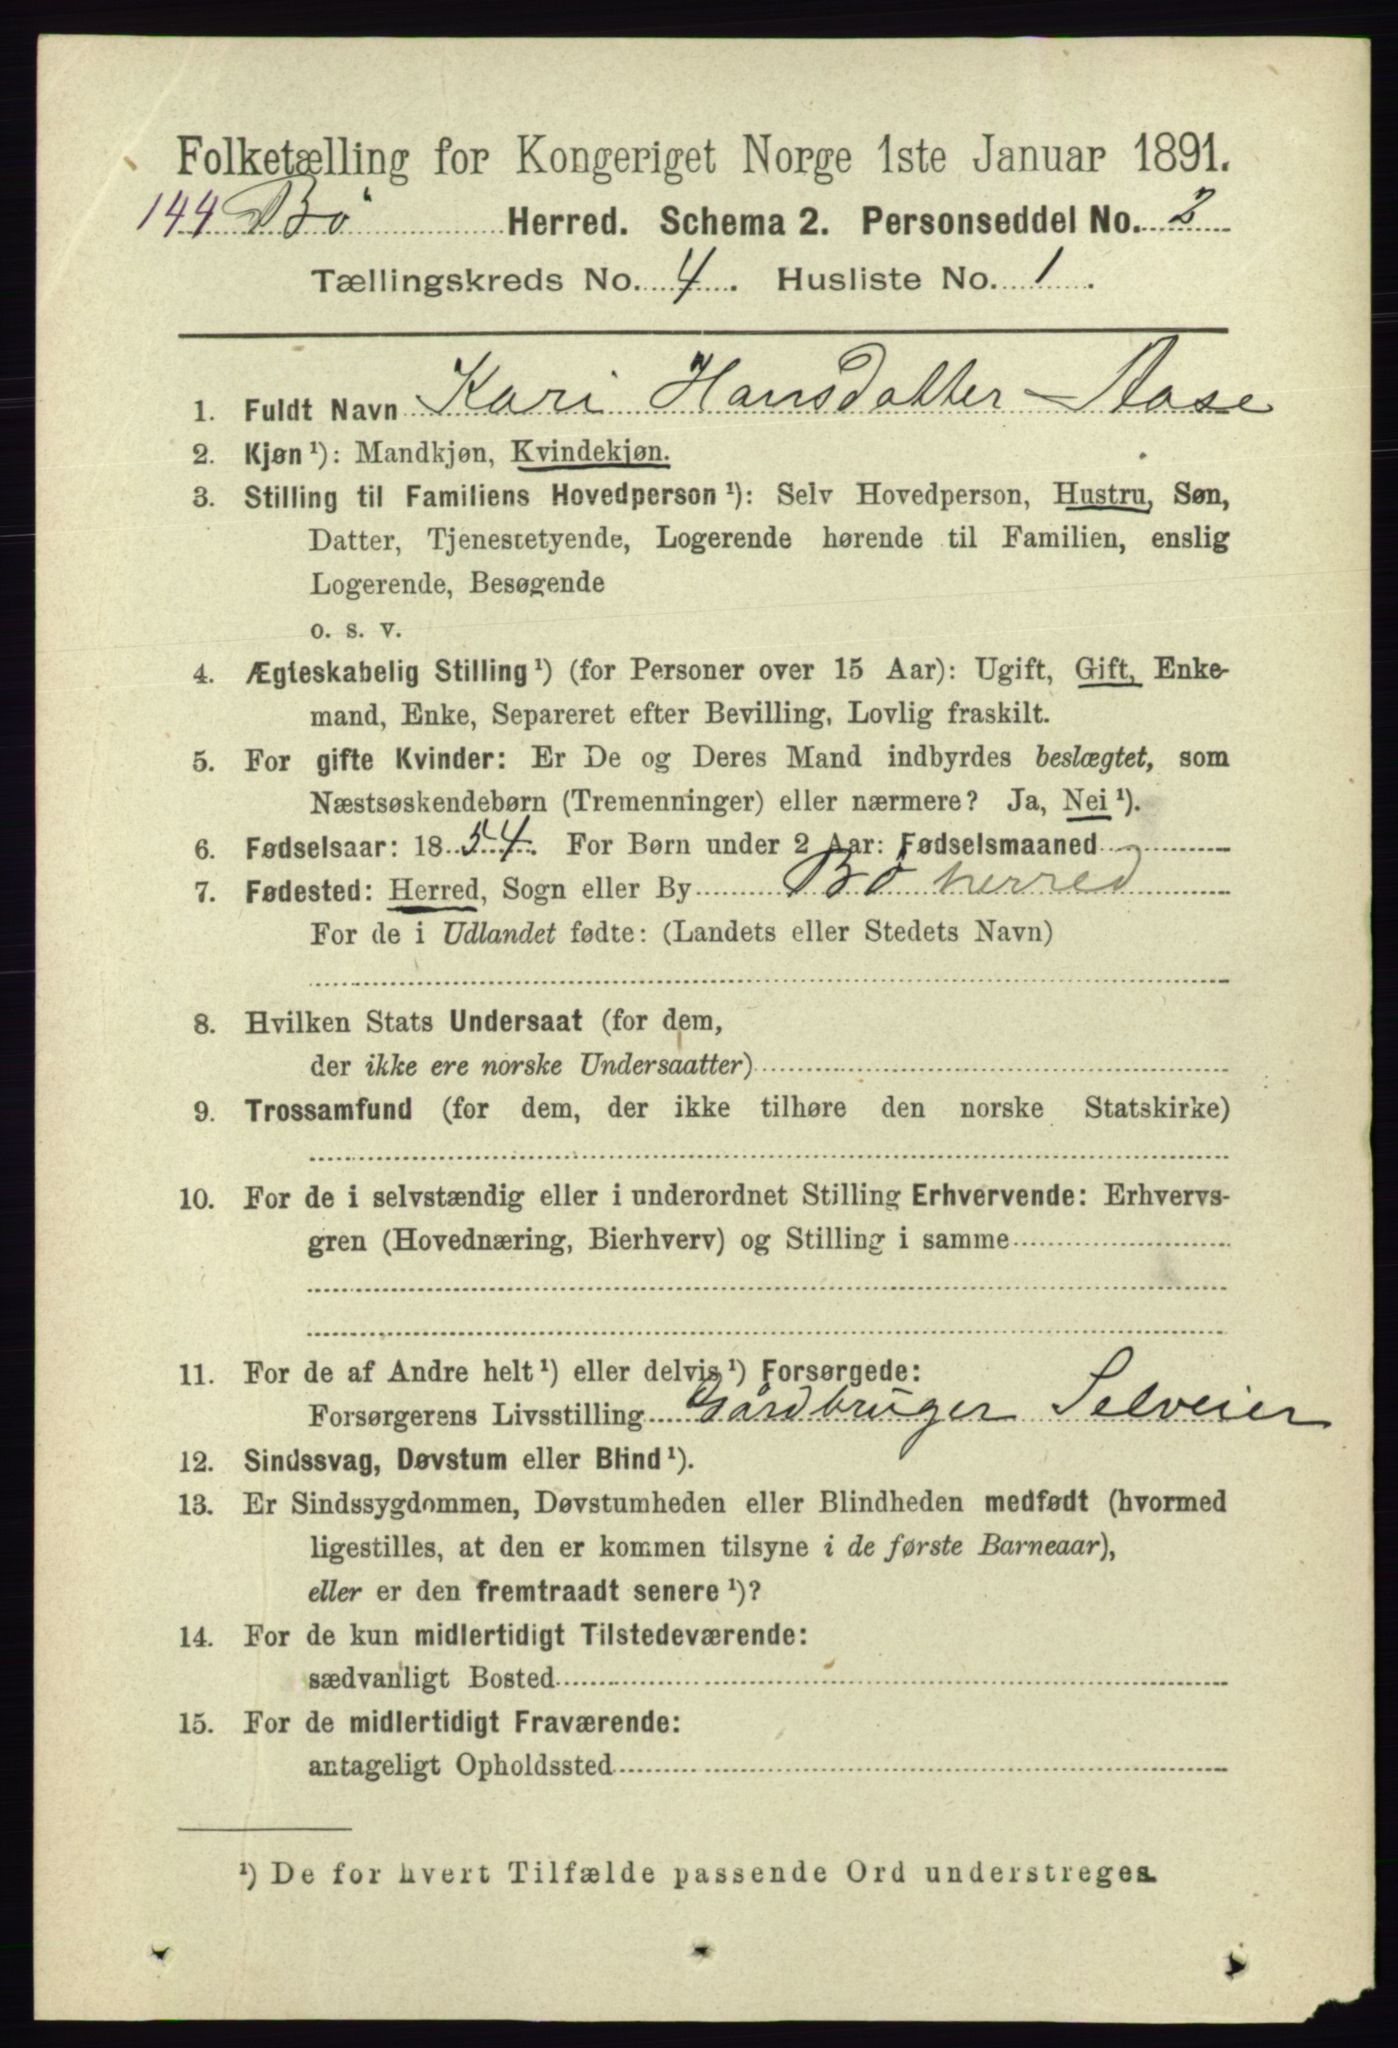 Folketælling for Kongeriget Norge 1ste Januar 1891.
144 Bø Herred. Schema 2. Personseddel No. 2
Tællingskreds No. 4. Husliste No. 1.
1. Fuldt Navn Kari Hansdatter Aase
2. Kjøn ¹): Mandkjøn, Kvindekjøn.
3. Stilling til Familiens Hovedperson ¹): Selv Hovedperson, Hustru, Søn,
Datter, Tjenestetyende, Logerende hørende til Familien, enslig
Logerende, Besøgende
o. s. v.
4. Ægteskabelig Stilling ¹) (for Personer over 15 Aar): Ugift, Gift, Enke-
mand, Enke, Separeret efter Bevilling, Lovlig fraskilt.
5. For gifte Kvinder: Er De og Deres Mand indbyrdes beslægtet, som
Næstsøskendebørn (Tremenninger) eller nærmere? Ja, Nei ¹).
6. Fødselsaar: 1854. For Børn under 2 Aar: Fødselsmaaned
7. Fødested: Herred, Sogn eller By Bø herred
For de i Udlandet fødte: (Landets eller Stedets Navn)
8. Hvilken Stats Undersaat (for dem,
der ikke ere norske Undersaatter)
9. Trossamfund (for dem, der ikke tilhøre den norske Statskirke)
10. For de i selvstændig eller i underordnet Stilling Erhvervende: Erhvervs-
gren (Hovednæring, Bierhverv) og Stilling i samme
11. For de af Andre helt ¹) eller delvis ¹) Forsørgede:
Forsørgerens Livsstilling Gårdbruger Selveier
12. Sindssvag, Døvstum eller Blind ¹).
13. Er Sindssygdommen, Døvstumheden eller Blindheden medfødt (hvormed
ligestilles, at den er kommen tilsyne i de første Barneaar),
eller er den fremtraadt senere ¹)?
14. For de kun midlertidigt Tilstedeværende:
sædvanligt Bosted
15. For de midlertidigt Fraværende:
antageligt Opholdssted
¹) De for hvert Tilfælde passende Ord understreges.